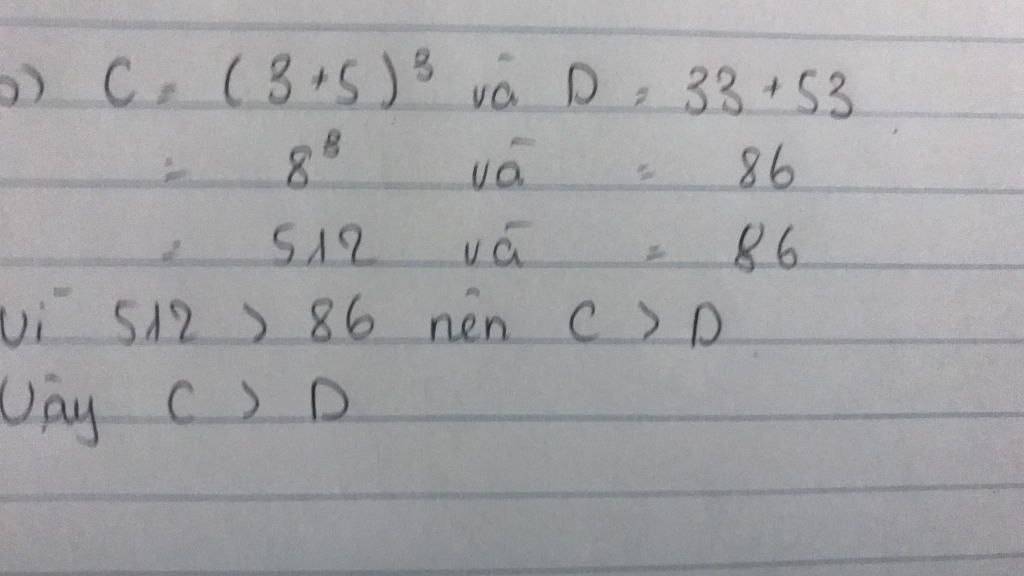 b) C = (3+5)³ và D = 33 + 53
= 8³ và = 86
= 512 và = 86
Vì 512 > 86 nên C > D
Vậy C > D